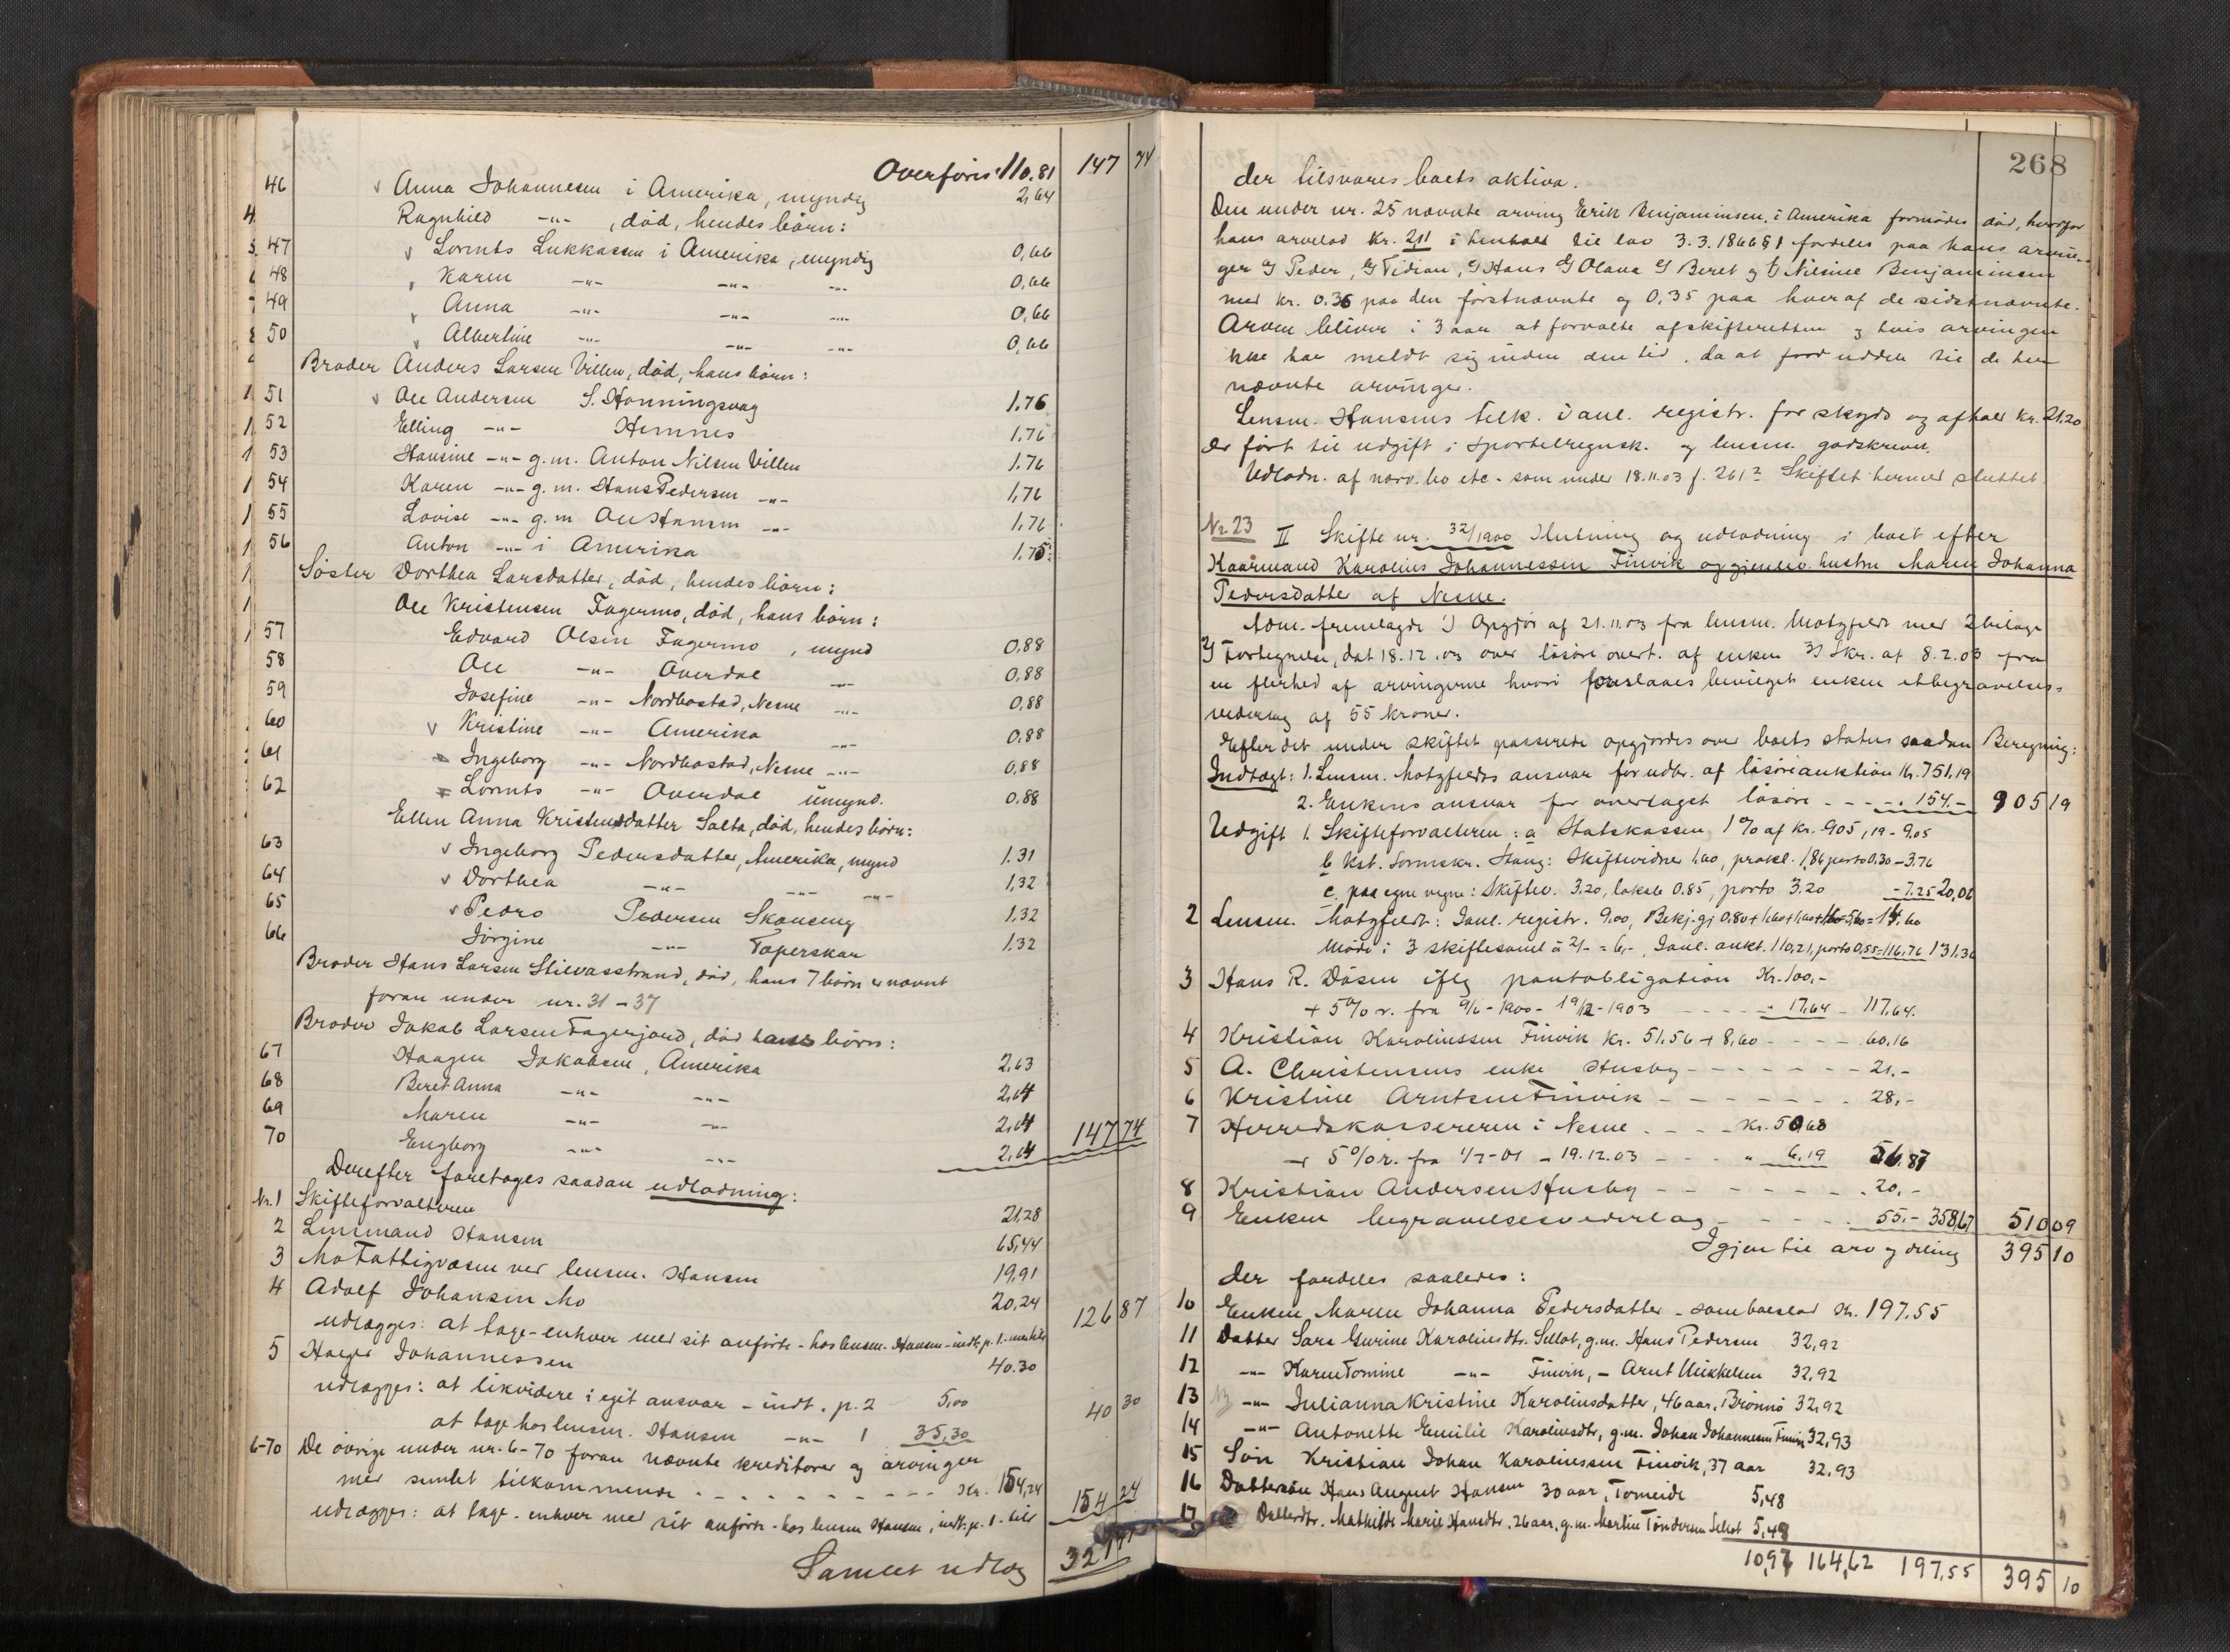 Overføris 110.81 147 74
46 v Anna Johannesen i Amerika, myndig 2,64
Ragnhild -"- , död, hendes börn:
47 v Lorents Lukkassen i Amerika, myndig 0,66
48 Karen -"- -"- -"- 0,66
49 Anna -"- -"- -"- 0,66
50 Albertine -"- -"- -"- 0,66
Broder Anders Larsen Villen, död, hans börn:
51 v Ole Andersen S. Honningsvag 1.76
52 Elling -"- Hemnes 1.76
53 Hansine -"- g.m. Anton Nilsen Villen 1.76
54 Karen -"- g.m. Hans Pedersen -"- 1,76
55 Lovise -"- g.m Ole Hansen -"- 1.76
56 Anton -"- i Amerika 1.75
Söster Dorthea Larsdatter, död, hendes börn:
Ole Kristensen Fagermo, död, hans börn:
57 Edvard Olsen Fagermo , mynd 0,88
58 Ole -"- Overdal -"- 0,88
59 Josefine -"- Nordbostad, Nesne -"- 0,88
60 v Kristine -"- Amerika -"- 0,88
61 Ingeborg -"- Nordbostad, Nesne -"- 0,88
62 Lorents -"- Overdal umynd. 0.88
Ellen Anna Kristensdatter Salta, död, hendes börn:
63 v Ingeborg Pedersdatter, Amerika, mynd 1.31
64 v Dorthea -"- -"- -"- 1,32
65 v Pedro Pedersen Skonseng 1.32
66 Jörgine -"- Toperskar 1.32
Broder Hans Larsen Stilvasstrand, död, hans 7 börn er nævnt
foran under nr. 31 - 37
Broder Jakob Larsen Fagerjord, död hans börn:
67 Haagen Jakobsen, Amerika 2,63
68 Beret Anna -"- -"- 2,64
69 Maren -"- -"- 2,64
70 Engborg -"- -"- 2,64 147 74
Derefter foretages saadan udlodning:
Nr. 1 Skifteforvalteren 21,28
2 Lensmand Hansen 65,44
3 Mo Fattigvæsen ved lensm. Hansen 19,91
4 Adolf Johansen Mo 20,24 126 87
udlægges: at tage - enhver med sit anförte - hos lensm. Hansen - indt. p. 1 -
5 Johannessen 40.30
udlægges: at likvidere i eget ansvar - indt. p. 2 5,00 40 30
at tage hos lensm. Hansen -"- 1 35,30
6-70 De övrige under nr. 6-70 foran nævnte kreditorer og arvinger
med samlet tilkommende - - - - Kr. 154,24 154 24
udlægges: at tage - enhver med sit anförte - hos lensm Hansen, indt. p. 1 -
Samlet udlæg
268
der tilsvares boets aktiva.
Den under nr. 25 nævnte arving Erik Benjaminsen, i Amerika formodes død, hvorfor
hans arvelod kr. 2,11 i henhold til lov 3.3.1866 § 1 fordeles paa hans arvin-
ger Peder, Tidian, Hans Olava Beret og Nilsine Benjaminsen
med kr. 0.36 paa den förstnævnte og 0,35 paa hver af de sidstnævnte.
Arven bliver i 3 aar at forvalte af skifteretten og hvis arvingen
ikke har meldt sig inden den tid, da at uddele til de her
nævnte arvinger.
Lensm. Hansens tilk. i anl. registr. for skyds og ophold Kr. 21,20
er fört til udgift i sportelregnsk. og lensm. godskreven.
Udlodn. af norv. bo etc. som under 18.11.03 f. 261² Skiftet hermed sluttet.
Nr. 23 II Skifte nr. 32/1900 Slutning og udlodning i boet efter
Kaarmand Karolius Johannessen Finvik og gjenlev. hustru Maren Johanna
Pedersdatter af Nesne.
Adm. fremlagde 1) Opgjör af 21.11.03 fra lensm. Motzfeldt med 2 bilage
2) Fortegnelse, dat 18.12.03 over lösöre overt. af enken 3) Skr. af 8.2.03 fra
en flerhed af arvingerne hvori foreslaaes bevilget enken et begravelses-
vederlag af 55 kroner.
Efter det under skiftet passerede opgjordes over boets status saadan Beregning:
Indtægt: 1. Lensm. Motzfeldts ansvar for udbr. af lösöreauktion Kr. 751,19
2. Enkens ansvar for overtaget lösöre - - - - 154.- 905 19
Udgift 1. Skifteforvalteren: a Statskassen 1% af kr. 905,19 - 9.05
b Kst. Sorenskr. Stang: Skiftevidner 1.60, prokl. 1,86 porto 0,30 - 3.76
c. paa egne vegne: Skiftev. 3.20, lokale 0.85, porto 3.20 - 7.25 20,06
2 Lensm. Motzfeldt: Ianl. registr. 9.00, Bekj. gj 0.80 + 1,60 + 1,60 + 1,60 = 5,60 = 14.60
Möde i 3 skiftesaml à 2/- = 6,-, Ianl. aukt. 110,21, porto 0,55 = 116,76 131.36
3 Hans R. Dåsen iflg pantobligation Kr. 100,-
+ 5% r. fra 9/6 - 1900 - 19/12 - 1903 - - - - 17,64 - 117,64.
4 Kristian Karoliussen Finvik kr. 51.56 + 8,60 - - - - 60,16
5 A. Christensens enke Husby - - - - - - 21.-
6 Kristine Arntsen Finvik - - - - - - 28,-
7 Herredskassereren i Nesne - - - - Kr. 50,68
+ 5% r. fra 1/7-01 - 19.12.03 - - - " 6,19 56.87
8 Kristian Andersen Husby - - - - - - 20,-
9 Enken begravelsesvederlag - - - - 55.- 358,67 510 09
Igjen til arv og deling 395 10
der fordeles saaledes:
10 Enken Maren Johanna Pedersdatter - som boeslod Kr. 197.55
11 Datter Sara Gurine Karoliusdtr. Sellot, g.m. Hans Pedersen 32,92
12 -"- Karen Tomine -"- Finvik, - Arnt Mikkelsen 32,92
13 -"- Julianna Kristine Karoliusdatter, 46 aar, Brönnö 32,92
14 -"- Antonette Emilie Karoliusdtr, g.m. Johan Johannesen Finvig 32,93
15 Sön Kristian Johan Karoliussen Finvik, 37 aar 32,93
16 Dattersön Hans August Hansen 30 aar, Tomeide 5,48
17 Datterdtr. Mathilde Marie Hansdtr. 26 aar, g.m. Martin Töndersen Sellot 5,49
10,97 164,62 197,55 395 10